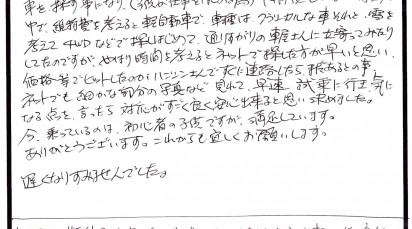 車を探す事になり、
中で、維持費を考えると軽自動車で、車種は、クラシカルな車それと、雪を
考えて4WDなどで探しはじめて、通りがかりの車屋さんに立寄ってみたり
してたのですが、やはり時間を考えるとネットで探した方が早いと思い、
価格等でヒットしたのが さんですぐに連絡したら、在るとの事、
ネットでも細かな部分の写真など見れて、早速、試車に行き、気に
なる点を言ったら対応がすごく良く安心出来ると思い求めました。
今、乗っているのは、初心者の子供ですが、満足しています。
ありがとうございます。これからも宜しくお願いします。
遅くなりすみませんでした。